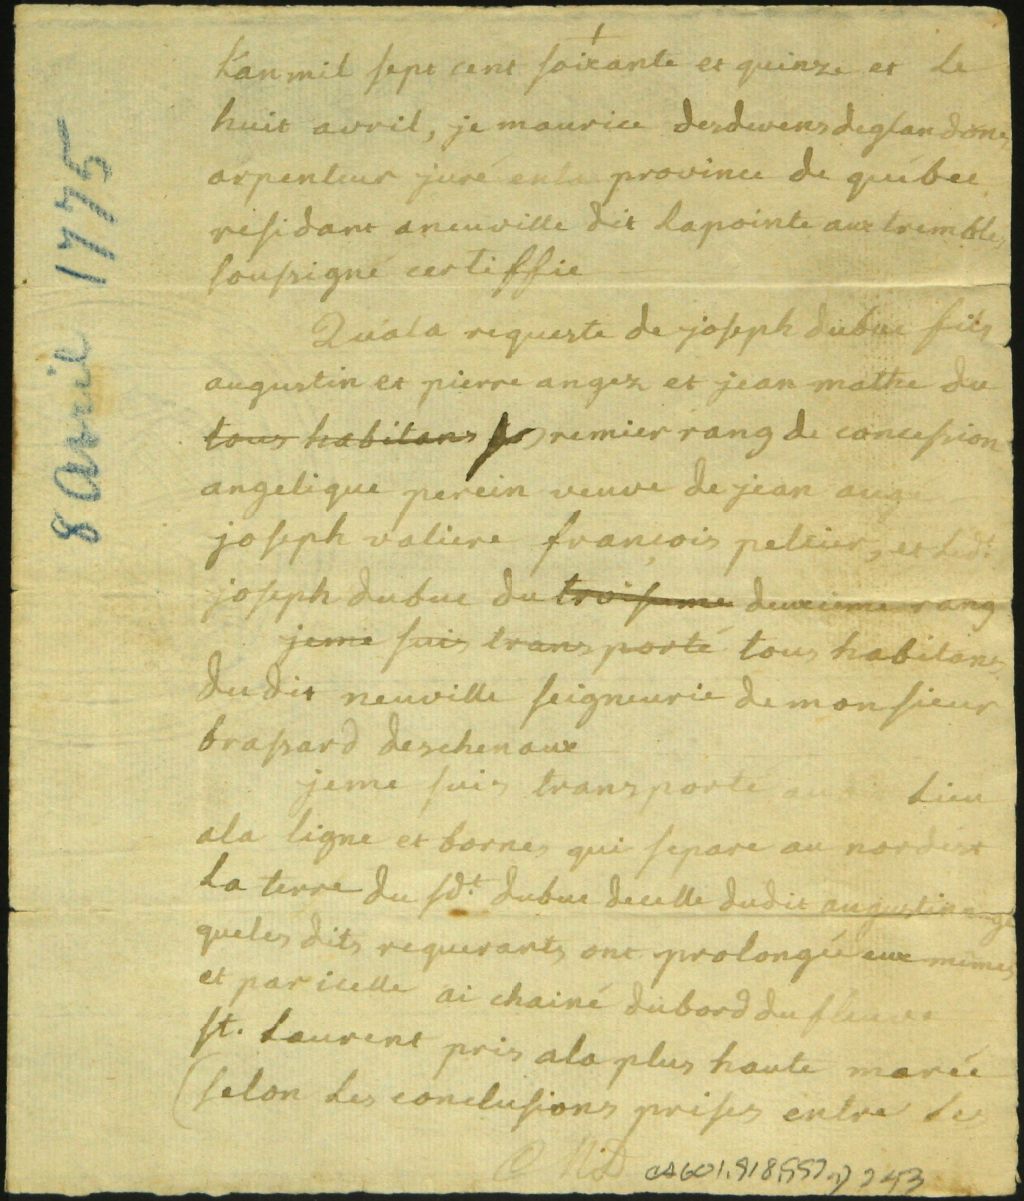 8 Avril 1775
Lan mil sept cent soixante et quinze et le
huit avril, je maurice desdevens deglandons
arpenteur juré en la province de québec
residant a neuville dit la pointe aux trembles
soussigné certiffie
Qu'a la requeste de joseph dubuc fils
augustin et pierre angez et jean mathe du
tous habitans premier rang de concession
angelique perein veuve de jean auge
joseph valiere françois peltier, et ledt.
joseph dubuc du troisieme deuxieme rang
je me suis transporté tous habitans
du dit neuville seigneurie de monsieur
brassard deschenaux
je me suis transporté au lieu
a la ligne et bornes qui separe au nordest
la terre du sdt. dubuc de celle du dit augustin ange
que les dits requerants ont prolongée eux memes
et par icelle ai chainé du bord du fleuve
st. Laurent pris a la plus haute marée
(selon les conclusions prises entre les
MD CA601,S18,SS2, 243